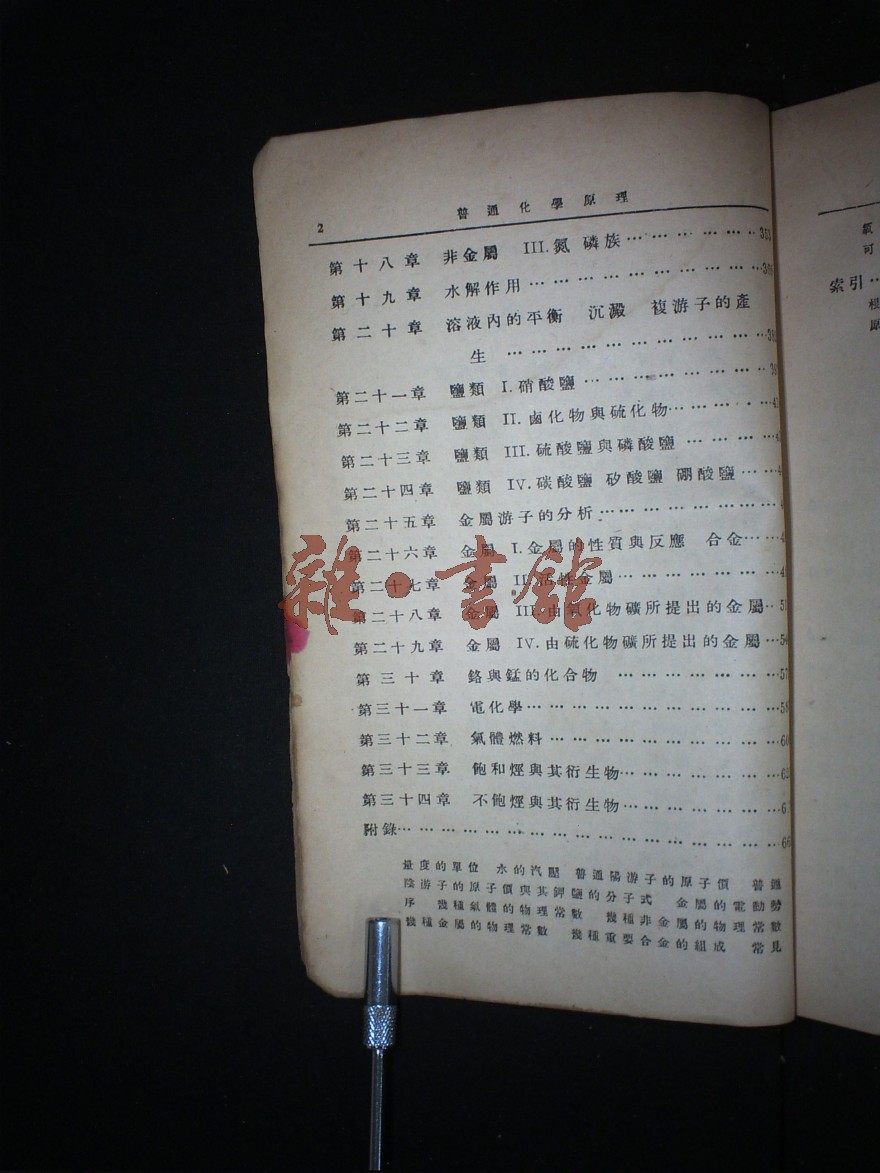 2 普通化學原理
第十八章 非金屬 III.氮 磷族………………353
第十九章 水解作用………………………36
第二十章 溶液內的平衡 沉澱 複游子的產
生………………………38
第二十一章 鹽類 I.硝酸鹽………………39
第二十二章 鹽類 II.鹵化物與硫化物…………4
第二十三章 鹽類 III.硫酸鹽與磷酸鹽…………4
第二十四章 鹽類 IV.碳酸鹽 矽酸鹽 硼酸鹽……4
第二十五章 金屬游子的分析………………4
第二十六章 金屬 I.金屬的性質與反應 合金……4
第二十七章 金屬 II.活性金屬………………4
第二十八章 金屬 III.由氧化物礦所提出的金屬…51
第二十九章 金屬 IV.由硫化物礦所提出的金屬…54
第三十章 鉻與錳的化合物………………57
第三十一章 電化學………………………58
第三十二章 氣體燃料………………………60
第三十三章 飽和烴與其衍生物………………62
第三十四章 不飽烴與其衍生物………………6
附錄………………………………66
量度的單位 水的汽壓 普通陽游子的原子價 普通
陰游子的原子價與其鉀鹽的分子式 金屬的電動勢
序 幾種氣體的物理常數 幾種非金屬的物理常數
幾種金屬的物理常數 幾種重要合金的組成 常見
氧
可
索引…
根
原
雜·書館